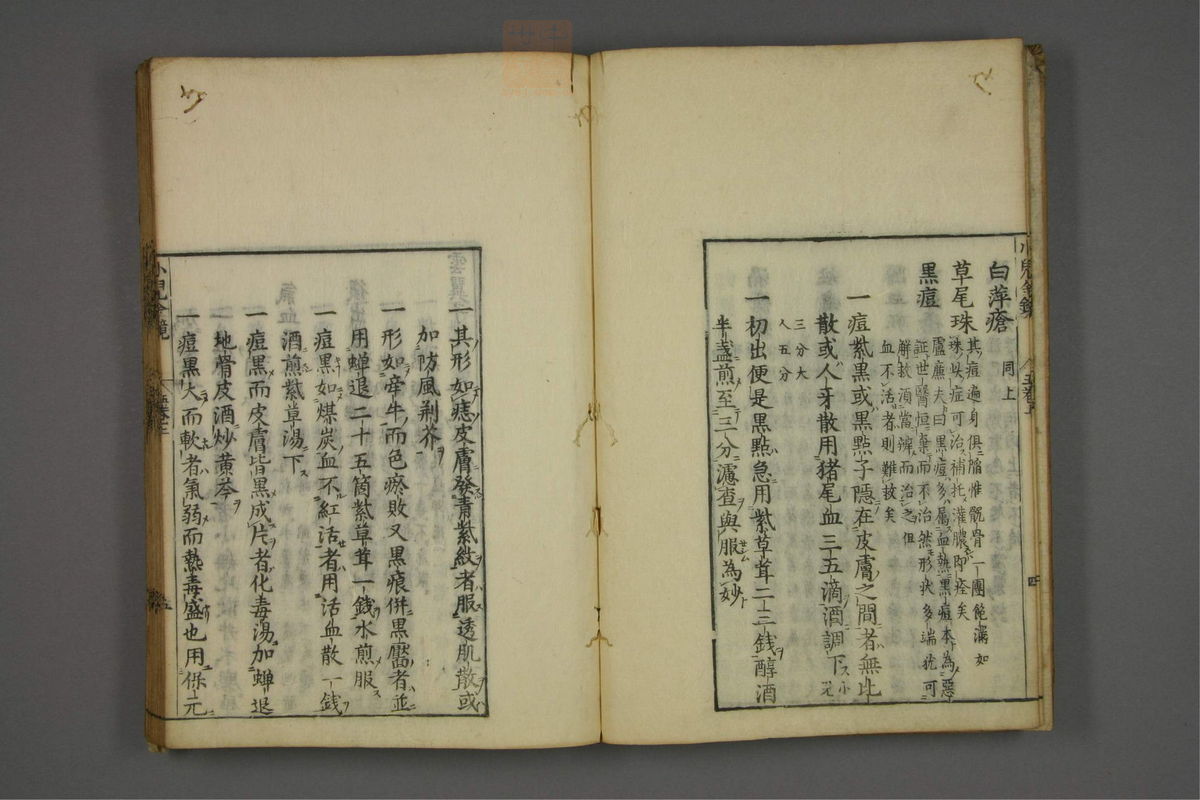 白萍瘡 同上
草尾珠 其痘遍身俱陷惟髋骨一團飽滿如
珠此症可治補托灌膿即痊矣
黑痘 盧廉夫曰黑痘多属血熱黑痘本為惡
証世醫恒棄而不治然形状多端犹可
解救須當辨而治之但
血不活者則難救矣
一痘紫黑或黑點子隱在皮膚之間者無比
散或人牙散用猪尾血三五滴酒調下小兒
三分大
人五分
一初出便是黑點急用紫草茸二三錢醇酒
半盞煎至三分濾查與服為妙
一其形如痣皮膚發青紫紋者服透肌散或
加防風荊芥
一形如牽牛而色瘀敗又黑痕併黑靨者並
用蟬退二十五箇紫草茸一錢水煎服
一痘黑如煤炭血不紅活者用活血散一錢
酒煎紫草湯下
一痘黑而皮膚皆黑成片者化毒湯加蟬退
地骨皮酒炒黄芩
一痘黑大而軟者氣弱而熱毒盛也用保元